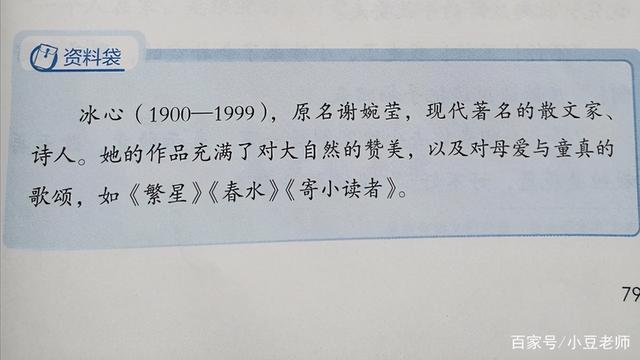 资料袋
冰心（1900—1999），原名谢婉莹，现代著名的散文家、
诗人。她的作品充满了对大自然的赞美，以及对母爱与童真的
歌颂，如《繁星》《春水》《寄小读者》。
79
百家号/小豆老师